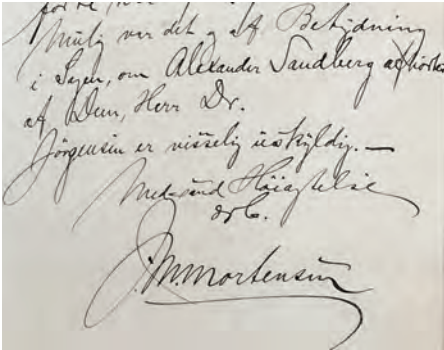 Mulig var det og af Betydning
i Sagen, om Alexander Sandberg afhörtes
af Dem, Herr Dr.
Jörgensen er visselig uskyldig. —
Med sand Höiagtelse
J. M. Mortensen